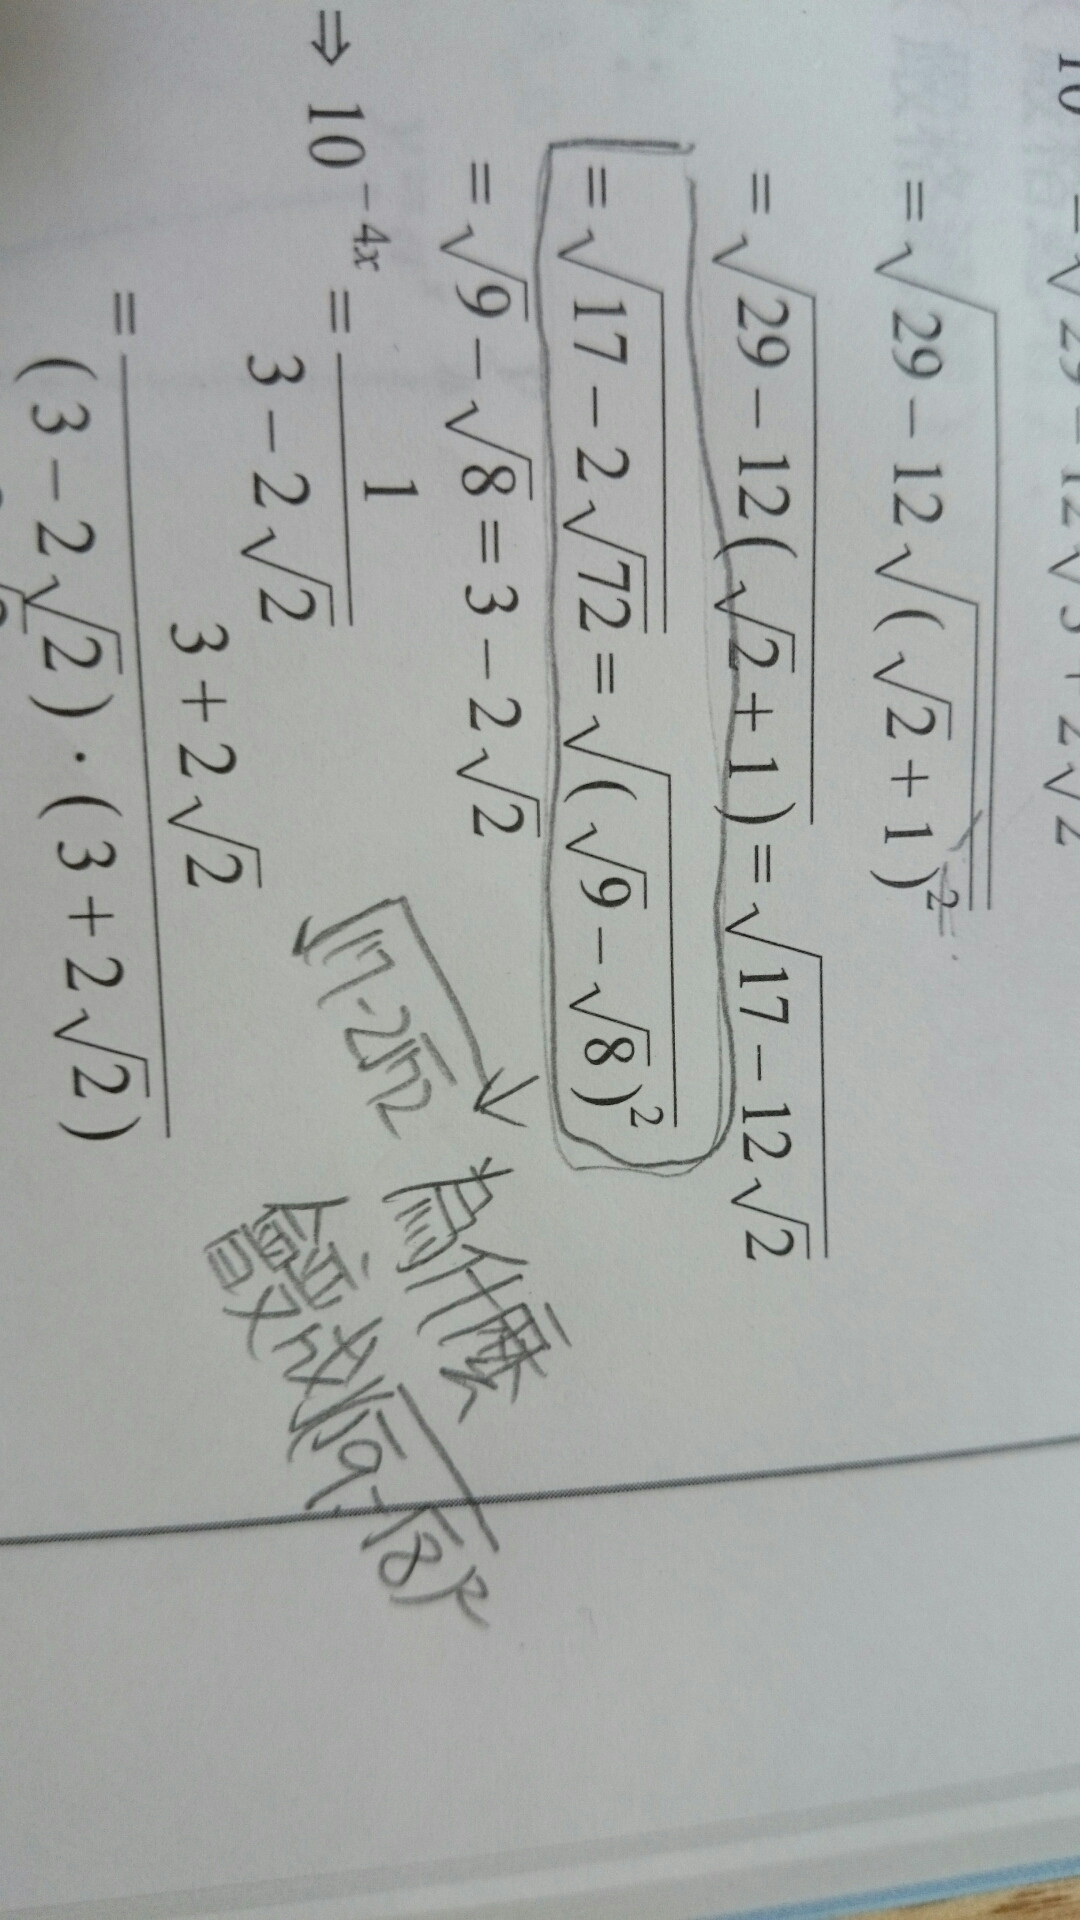 10 = √29 − 12√3 + 2√2
= √(29 − 12√((√2 + 1)²))
= √(29 − 12(√2 + 1)) = √(17 − 12√2)
= √(17 − 2√72) = √((√9 − √8)²)
= √9 − √8 = 3 − 2√2
⇒ 10⁻⁴ˣ = 1 / (3 − 2√2)
= (3 + 2√2) / ((3 − 2√2) · (3 + 2√2))
√17-2√72
為什麼
會變成√(√9-√8)²